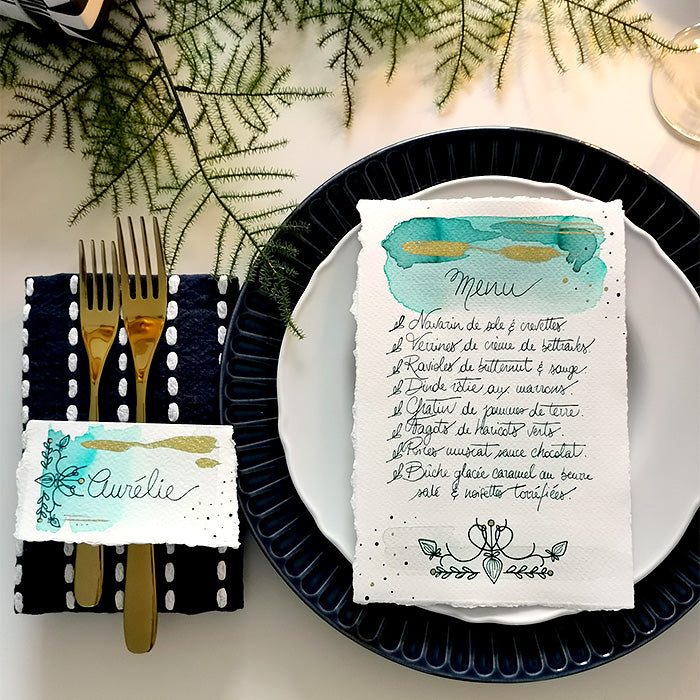 Menu
Navarin de sole & crevettes.
Verrines de crème de bettraves.
Ravioles de butternut & sauge.
Dinde rôtie aux marrons.
Gratin de pommes de terre.
Fagots de haricots verts
Poires muscat sauce chocolat.
Bûche glacée caramel au beurre
salé & noisettes torréfiées.
Aurélie